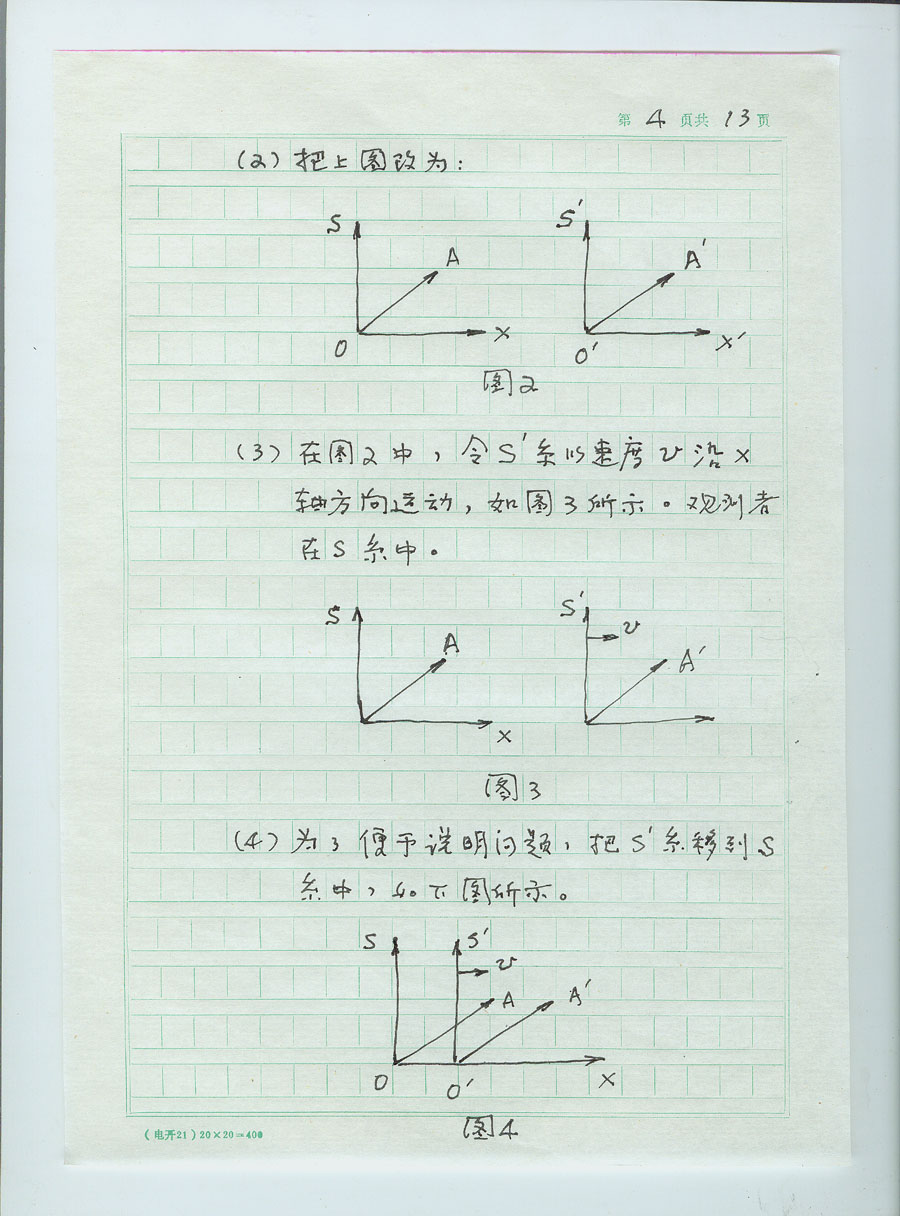 第 4 页共 13 页
(2) 把上图改为:
S S′
A A′
O X O′ X′
图2
(3) 在图2中, 令S′系以速度v沿x
轴方向运动, 如图3所示。观测者
在S系中。
S S′
v
A A′
X
图3
(4) 为了便于说明问题, 把S′系移到S
系中, 如下图所示。
S S′
v
A A′
O O′ X
图4
(电开21) 20×20=400